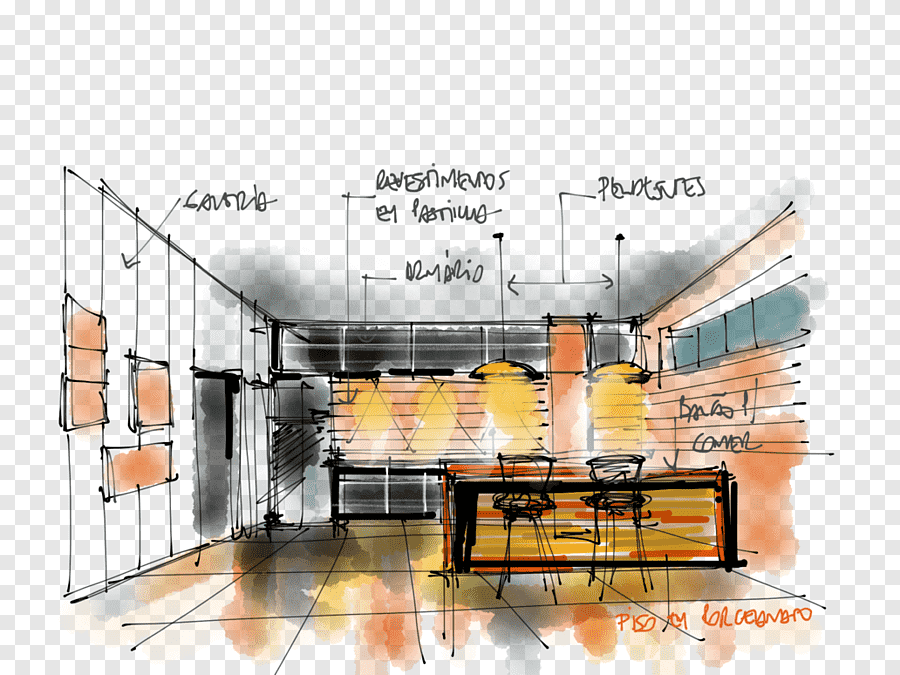 REVESTIMENTOS
EM PASTILHA
PENDENTES
ARMÁRIO
BALCÃO P/
COMER
PISO EM PORCELANATO